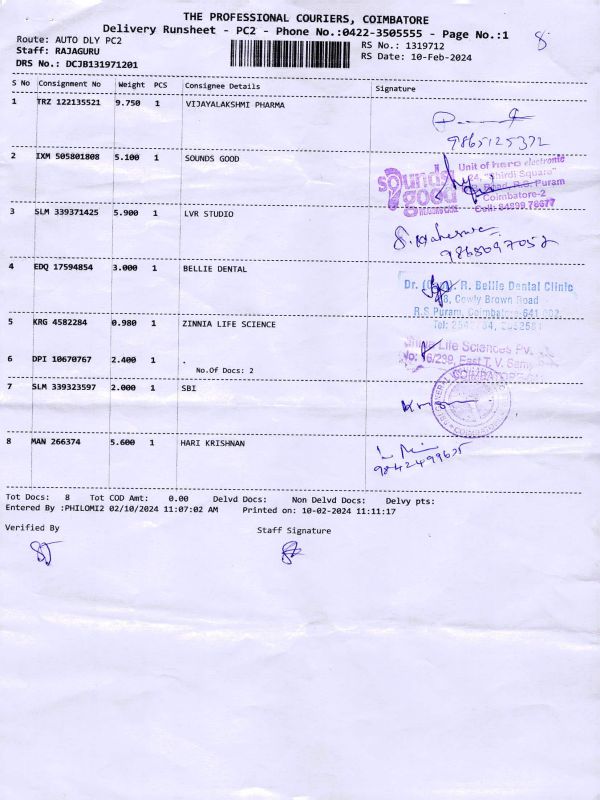 THE PROFESSIONAL COURIERS, COIMBATORE
Delivery Runsheet - PC2 - Phone No.:0422-3505555 - Page No.:1
8
Route: AUTO DLY PC2
RS No.: 1319712
Staff: RAJAGURU
RS Date: 10-Feb-2024
DRS No.: DCJB131971201
S No Consignment No Weight PCS Consignee Details Signature
1 TRZ 122135521 9.750 1 VIJAYALAKSHMI PHARMA
9865125372
2 IXM 505801808 5.100 1 SOUNDS GOOD
sounds good
Unit of hero electronic
"Shirdi Square"
Road, R.S. Puram
Coimbatore-2
3 SLM 339371425 5.900 1 LVR STUDIO
S. Maheswar
9865097052
4 EDQ 17594854 3.000 1 BELLIE DENTAL
Dr. R. Bellie Dental Clinic
Cowly Brown Road
R.S Puram, Coimbatore-641 002.
5 KRG 4582284 0.980 1 ZINNIA LIFE SCIENCE
Life Sciences Pvt.
6 DPI 10670767 2.400 1 .
No.Of Docs: 2
7 SLM 339323597 2.000 1 SBI
COIMBATORE
8 MAN 266374 5.600 1 HARI KRISHNAN
9842499635
Tot Docs: 8 Tot COD Amt: 0.00 Delvd Docs: Non Delvd Docs: Delvy pts:
Entered By :PHILOMI2 02/10/2024 11:07:02 AM Printed on: 10-02-2024 11:11:17
Verified By Staff Signature